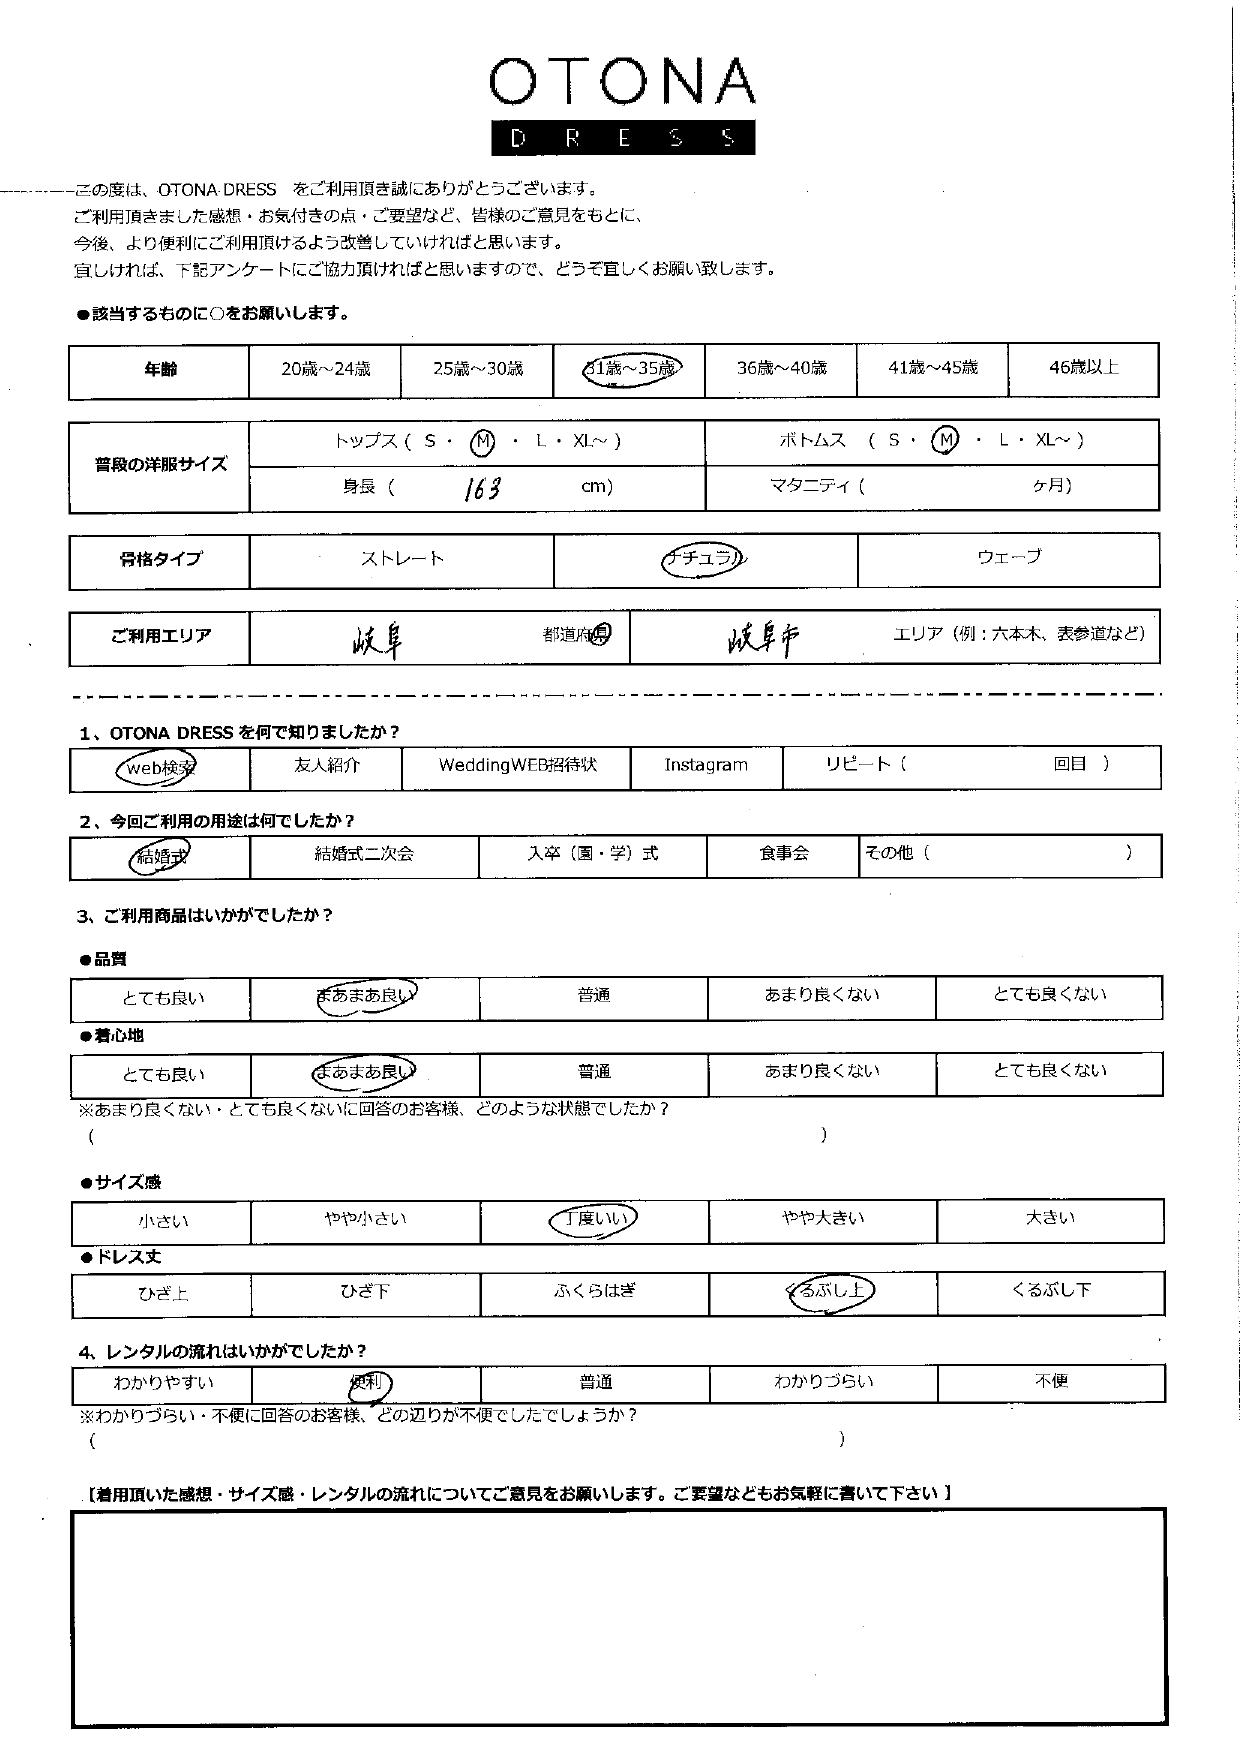 OTONA
DRESS
この度は、OTONA DRESS　をご利用頂き誠にありがとうございます。
ご利用頂きました感想・お気付きの点・ご要望など、皆様のご意見をもとに、
今後、より便利にご利用頂けるよう改善していければと思います。
宜しければ、下記アンケートにご協力頂ければと思いますので、どうぞ宜しくお願い致します。
●該当するものに○をお願いします。
年齢 20歳～24歳 25歳～30歳 31歳～35歳 36歳～40歳 41歳～45歳 46歳以上
トップス ( S ・ M ・ L ・ XL～ ) ボトムス ( S ・ M ・ L ・ XL～ )
普段の洋服サイズ
身長 ( 163 cm) マタニティ ( ヶ月)
骨格タイプ ストレート ナチュラル ウェーブ
ご利用エリア 岐阜 都道府県 岐阜市 エリア（例：六本木、表参道など）
1、OTONA DRESS を何で知りましたか？
web検索 友人紹介 WeddingWEB招待状 Instagram リピート（ 回目 ）
2、今回ご利用の用途は何でしたか？
結婚式 結婚式二次会 入卒（園・学）式 食事会 その他（ ）
3、ご利用商品はいかがでしたか？
●品質
とても良い まあまあ良い 普通 あまり良くない とても良くない
●着心地
とても良い まあまあ良い 普通 あまり良くない とても良くない
※あまり良くない・とても良くないに回答のお客様、どのような状態でしたか？
( )
●サイズ感
小さい やや小さい 丁度いい やや大きい 大きい
●ドレス丈
ひざ上 ひざ下 ふくらはぎ くるぶし上 くるぶし下
4、レンタルの流れはいかがでしたか？
わかりやすい 便利 普通 わかりづらい 不便
※わかりづらい・不便に回答のお客様、どの辺りが不便でしたでしょうか？
( )
【着用頂いた感想・サイズ感・レンタルの流れについてご意見をお願いします。ご要望などもお気軽に書いて下さい 】